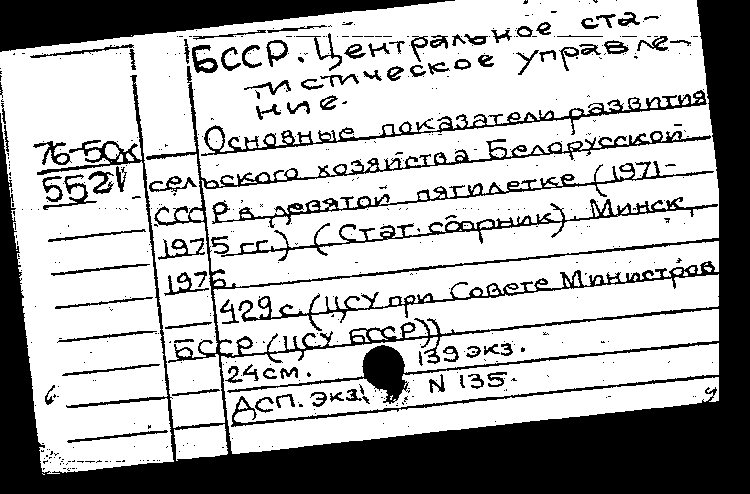 БССР. Центральное ста-
тистическое управле-
ние.
Основные показатели развития
76-50к
5521
сельского хозяйства Белорусской
ССР в девятой пятилетке (1971-
1975 гг.) (Стат. сборник). Минск,
1976.
429 с. (ЦСУ при Совете Министров
БССР (ЦСУ БССР)).
24 см. 139 экз.
ДСП. Экз. N 135.